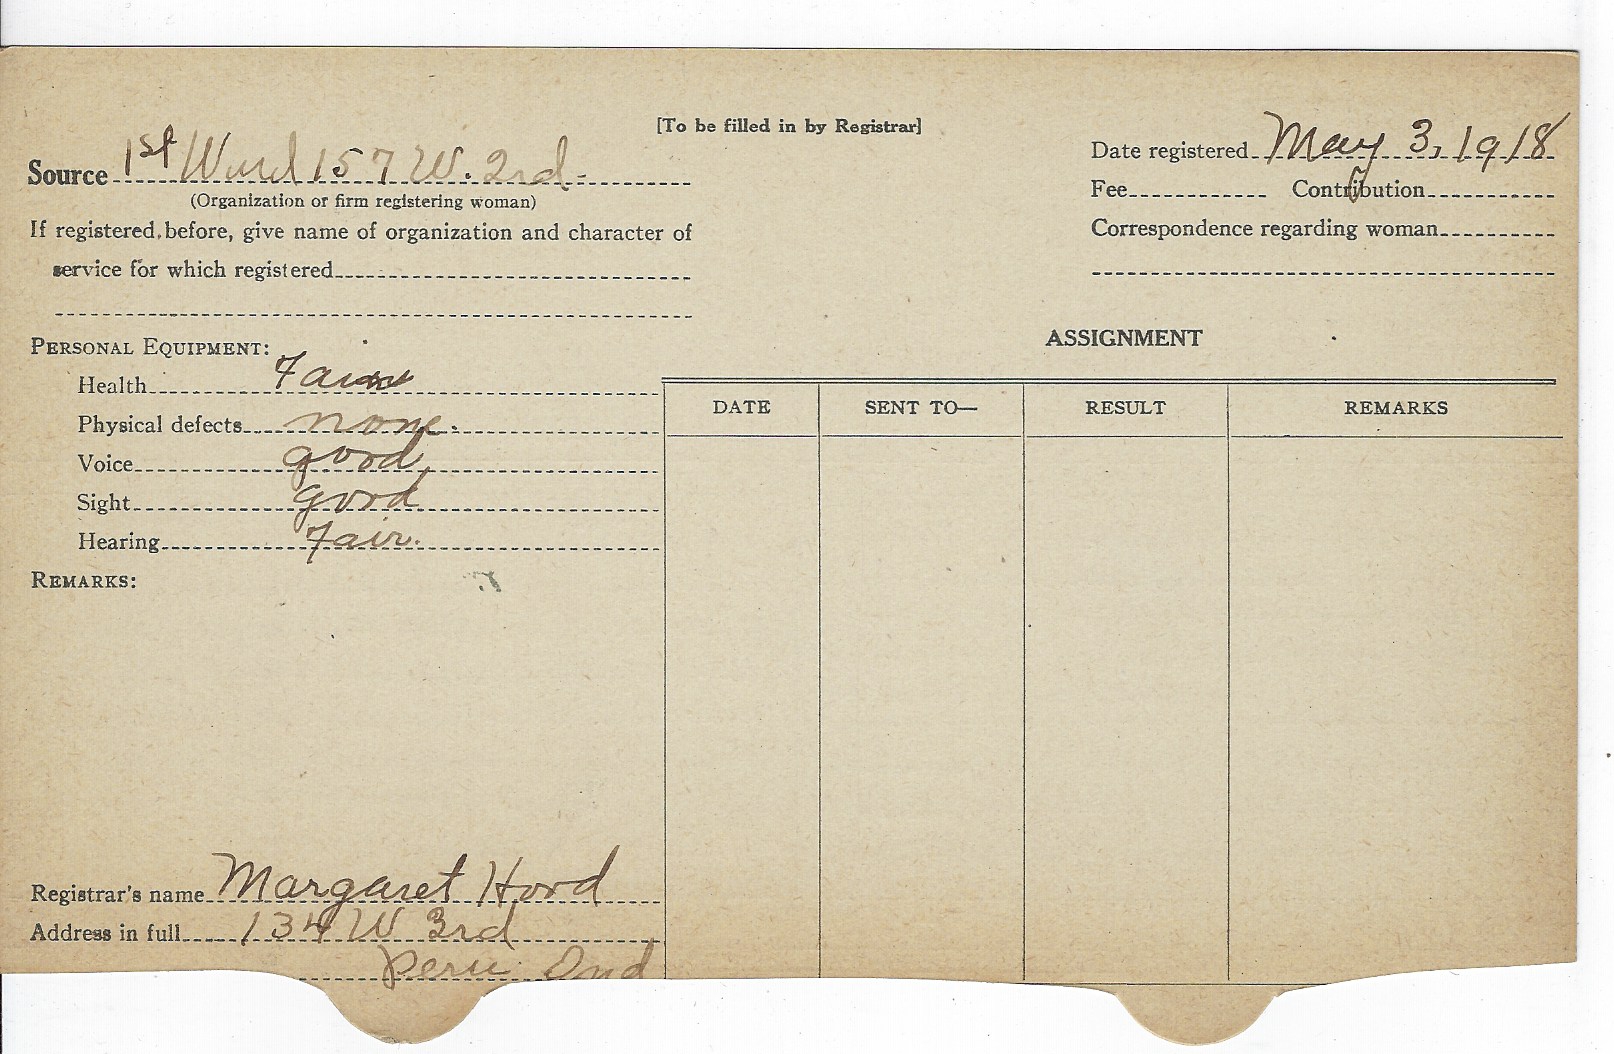 [To be filled in by Registrar]
Source 1st Ward 157 W. 2nd.
(Organization or firm registering woman)
If registered before, give name of organization and character of
service for which registered
PERSONAL EQUIPMENT:
Health Fair
Physical defects none.
Voice good,
Sight good
Hearing Fair.
REMARKS:
Registrar's name Margaret Hood
Address in full 134 W 3rd
Peru Ind
Date registered May 3, 1918
Fee Contribution
Correspondence regarding woman
ASSIGNMENT
DATE SENT TO— RESULT REMARKS